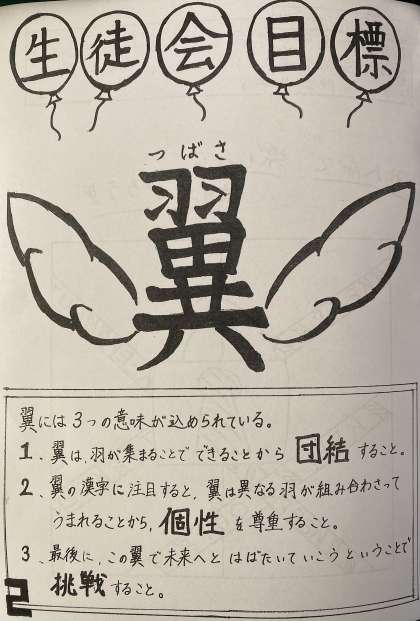 生徒会目標
つばさ
翼
翼には3つの意味が込められている。
1、翼は、羽が集まることでできることから団結すること。
2、翼の漢字に注目すると、翼は異なる羽が組み合わさって
うまれることから、個性を尊重すること。
3、最後に、この翼で未来へとはばたいていこうということで
挑戦すること。
2